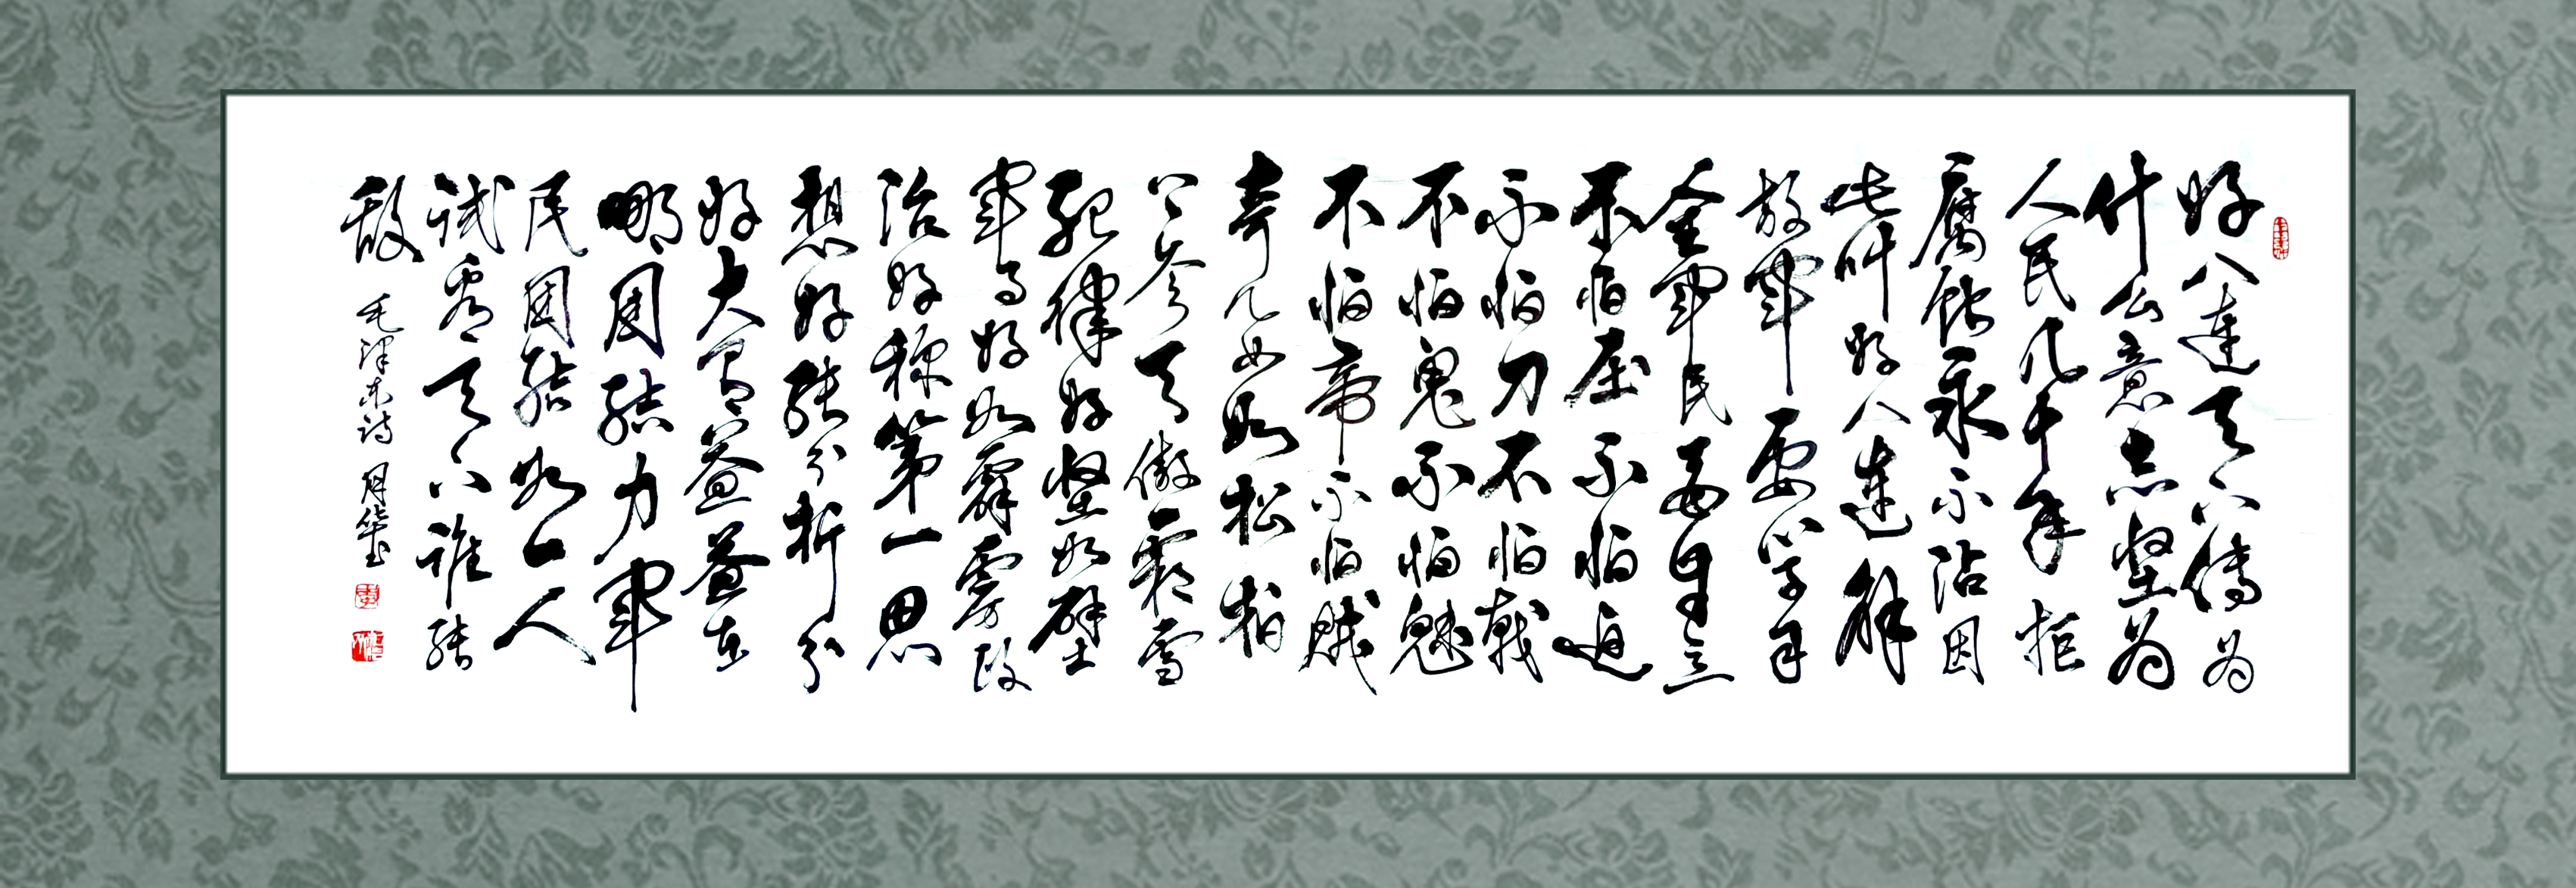 好八連天下傳为
什么意志坚为
人民几十年拒
腐蚀永不沾因
此叫好八連解
放軍要学习
全軍民要自立
不怕压不怕迫
不怕刀不怕戟
不怕鬼不怕魅
不怕帝不怕贼
奇儿女如松柏
上参天傲霜雪
纪律好坚如壁
軍事好如霹雳政
治好称第一思
想好能分析分
好大有益益在
哪团结力軍
民团结如一人
试看天下谁能
敌 毛泽东诗 月华书